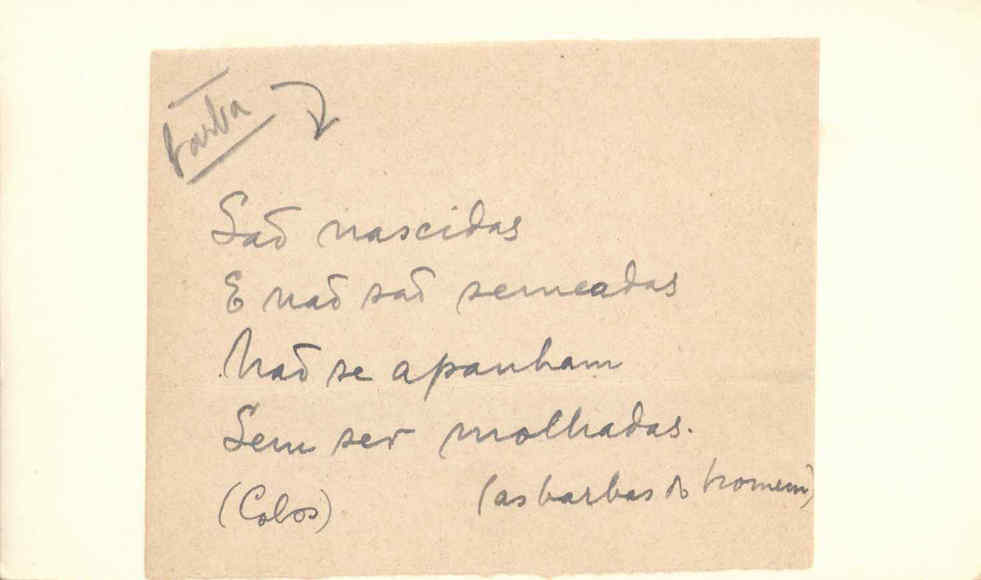 barba
São nascidas
E não são semeadas
Não se apanham
Sem ser molhadas.
(Cobos) (as barbas do homem)